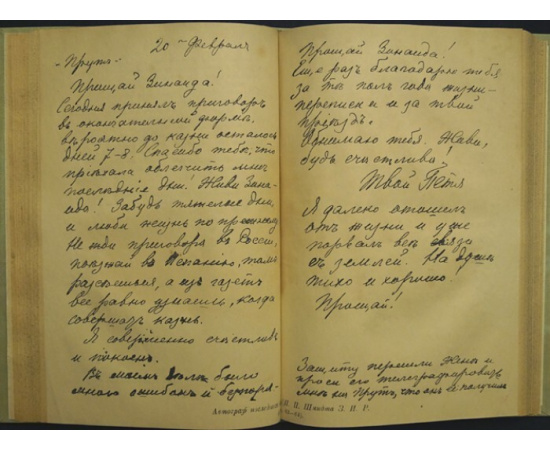 20 Февраля
-Прутъ-
Прощай Зинаида!
Сегодня принялъ приговоръ
въ окончательной формѣ,
вѣроятно до казни осталось
дней 7-8. Спасибо тебѣ, что
пріѣхала облегчить мнѣ
последніе дни! Живи Зина-
ида! Забудь тяжелые дни,
и люби жизнь по прежнему
Не жди приговора въ Россіи,
поезжай въ Испанію, тамъ
разсѣешься, а изъ газетъ
все равно узнаешь, когда
совершатъ казнь.
Я совершенно счастливъ
и покоенъ.
Въ моемъ было
много ошибокъ и безпоря-
Прощай Зинаида!
Еще разъ благодарю тебя
за то полъ года жизни-
переписки и за твой
пріѣздъ.
Обнимаю тебя. Живи,
будь счастлива!
Твой Петя
Я далеко отошелъ
отъ жизни и уже
порвалъ всѣ связи
съ землей. На душѣ
тихо и хорошо.
Прощай!
Защиту перешли Женѣ и
проси его телеграфировать
мнѣ на Прутъ, что онъ ее получилъ
Автограф П. П. Шмидта З. И. Р.